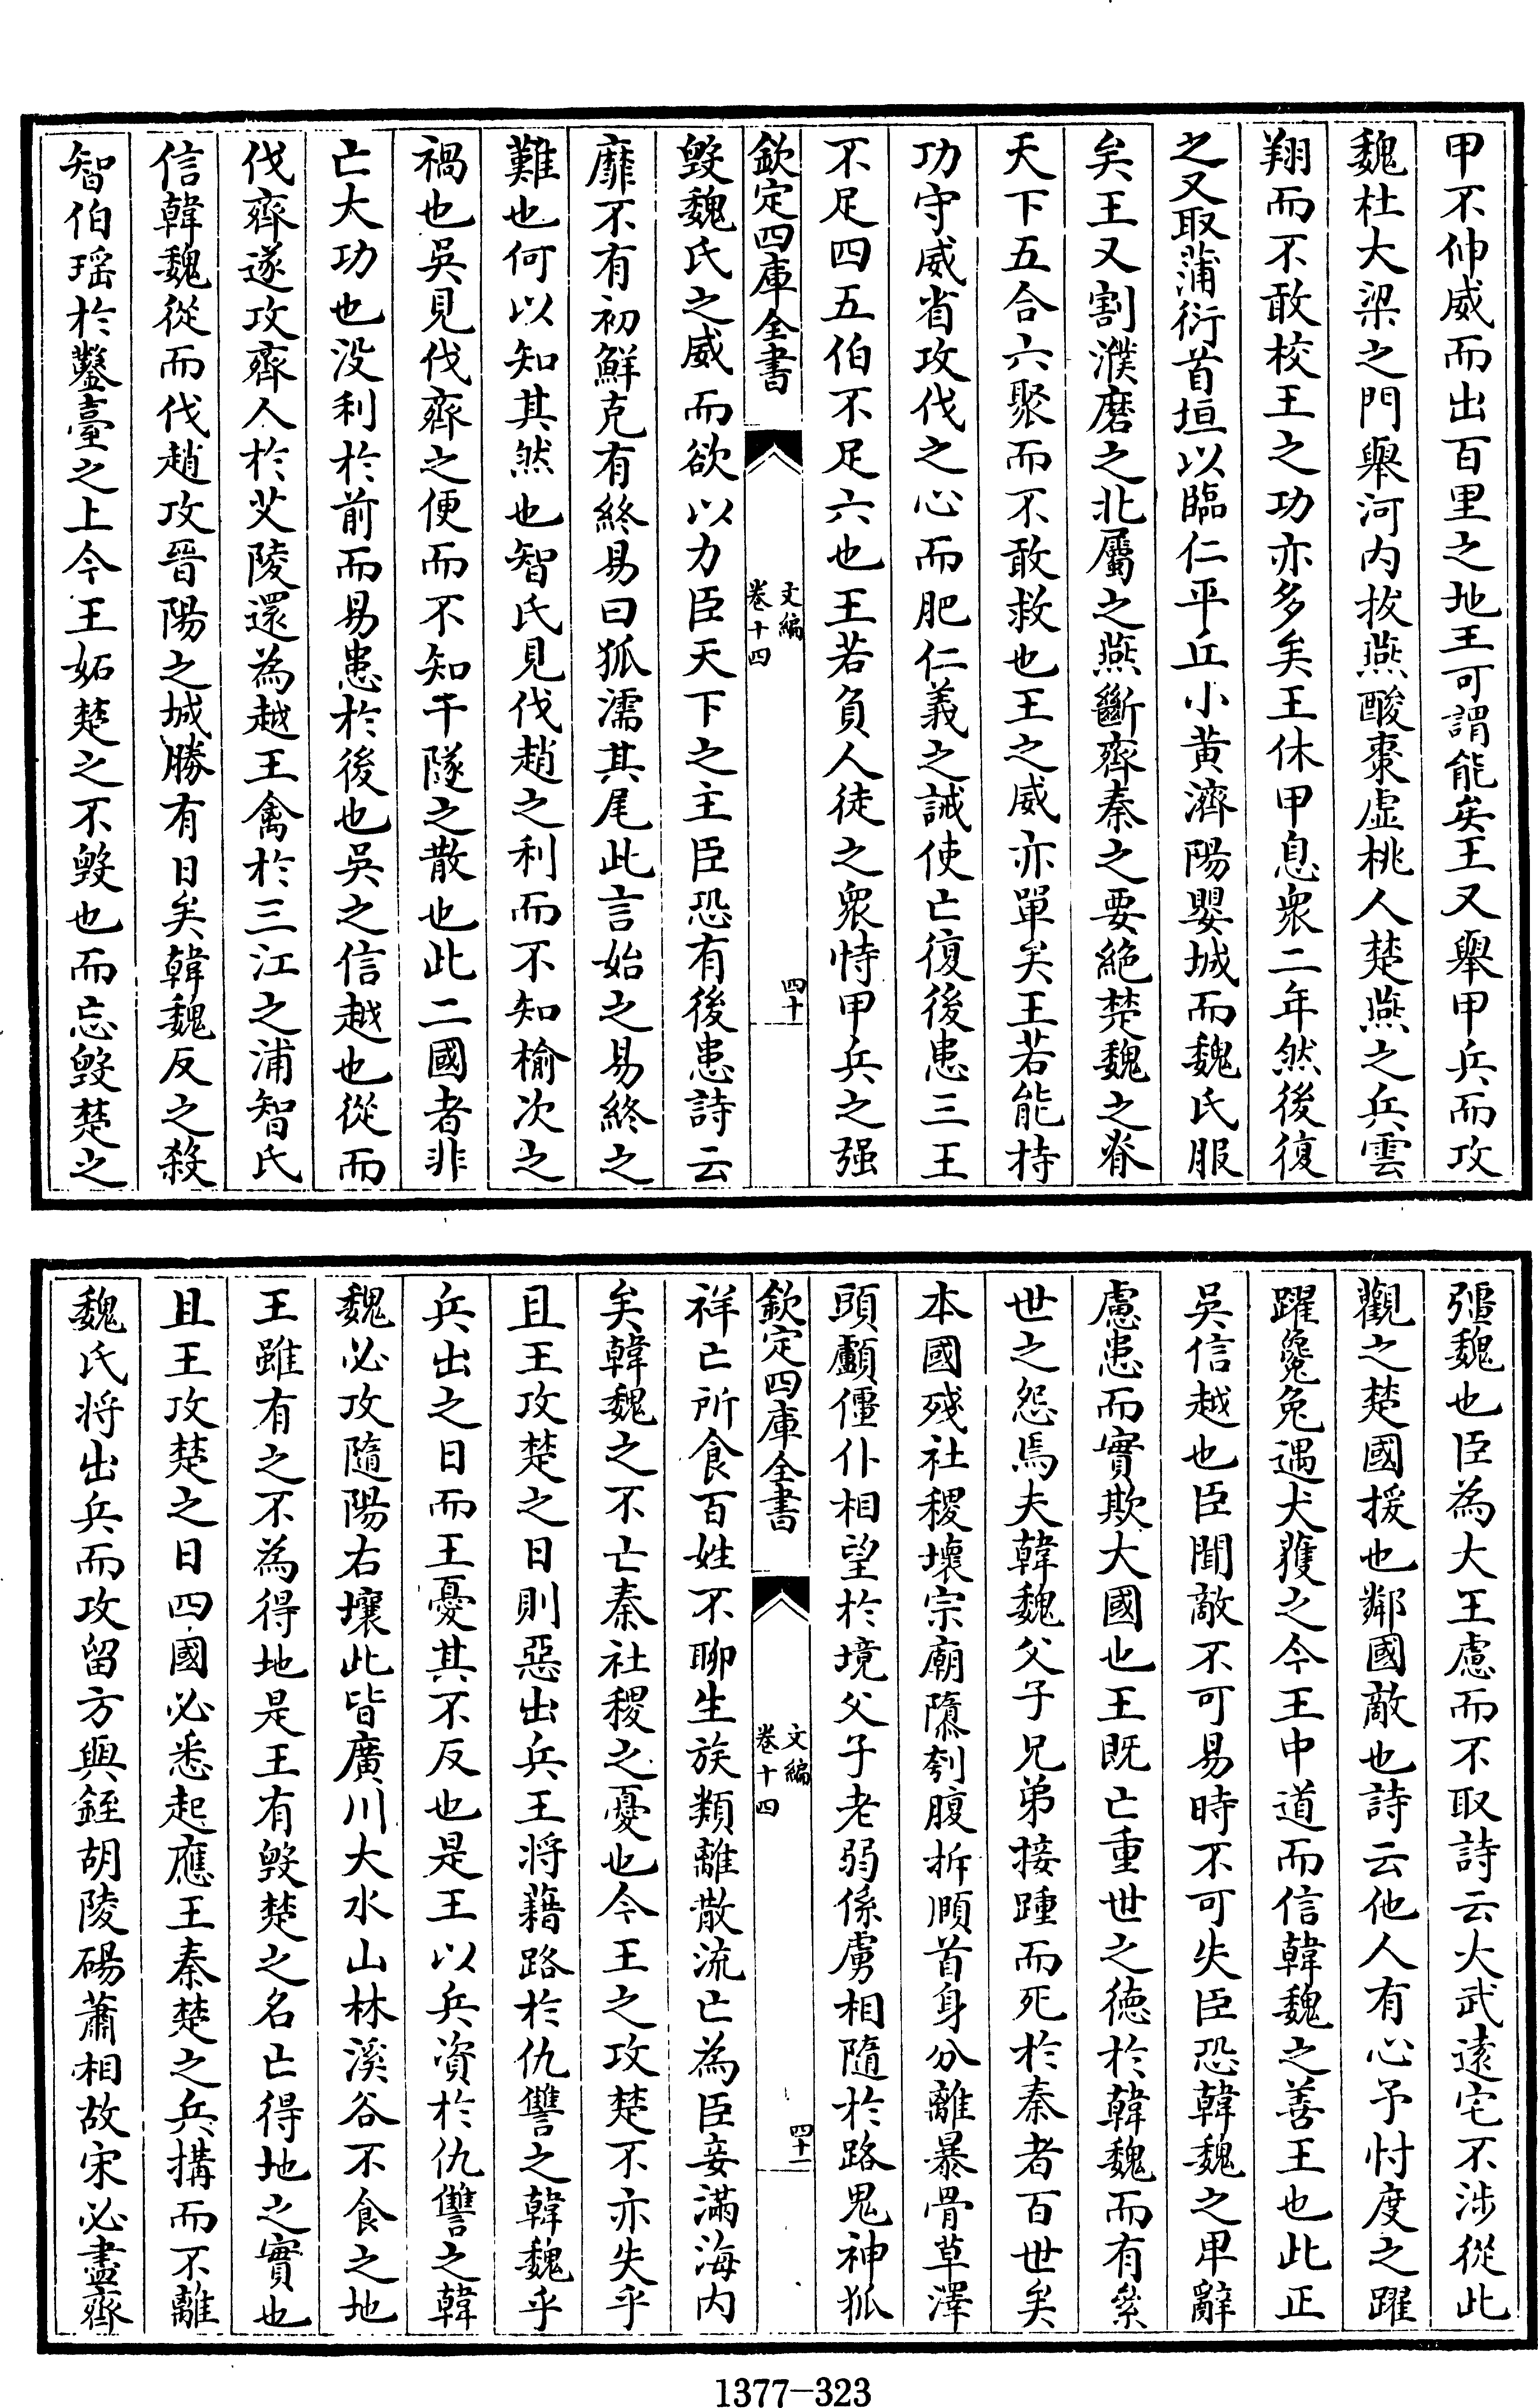 甲不伸威而出百里之地王可謂能矣王又舉甲兵而攻
魏杜大梁之門舉河内拔燕酸棗虚桃人楚燕之兵雲
翔而不敢校王之功亦多矣王休甲息衆二年然後復
之又取蒲衍首垣以臨仁平丘小黄濟陽嬰城而魏氏服
矣王又割濮磨之北屬之燕斷齊秦之要絶楚魏之脊
天下五合六聚而不敢救也王之威亦單矣王若能持
功守威省攻伐之心而肥仁義之誡使亡復後患三王
不足四五伯不足六也王若負人徒之衆恃甲兵之强
欽定四庫全書
文編
卷十四
四十
毁魏氏之威而欲以力臣天下之主臣恐有後患詩云
靡不有初鮮克有終易曰狐濡其尾此言始之易終之
難也何以知其然也智氏見伐趙之利而不知榆次之
禍也吳見伐齊之便而不知干隧之敗也此二國者非
亡大功也没利於前而易患於後也吳之信越也從而
伐齊遂攻齊人於艾陵還為越王禽於三江之浦智氏
信韓魏從而伐趙攻晉陽之城勝有日矣韓魏反之殺
智伯瑶於鑿臺之上今王妬楚之不毁也而忘毁楚之
彊魏也臣為大王慮而不取詩云大武遠宅不涉從此
觀之楚國援也鄰國敵也詩云他人有心予忖度之躍
躍毚兔遇犬獲之今王中道而信韓魏之善王也此正
吳信越也臣聞敵不可易時不可失臣恐韓魏之卑辭
慮患而實欺大國也王既亡重世之德於韓魏而有絫
世之怨焉夫韓魏父子兄弟接踵而死於秦者百世矣
本國殘社稷壞宗廟隳刳腹折頤首身分離暴骨草澤
頭顱僵仆相望於境父子老弱係虜相隨於路鬼神狐
欽定四庫全書
文編
卷十四
四十一
祥亡所食百姓不聊生族類離散流亡為臣妾滿海内
矣韓魏之不亡秦社稷之憂也今王之攻楚不亦失乎
且王攻楚之日則惡出兵王将藉路於仇讐之韓魏乎
兵出之日而王憂其不反也是王以兵資於仇讐之韓
魏必攻隨陽右壤此皆廣川大水山林溪谷不食之地
王雖有之不為得地是王有毁楚之名亡得地之實也
且王攻楚之日四國必悉起應王秦楚之兵搆而不離
魏氏将出兵而攻留方與銍胡陵碭蕭相故宋必盡齊
1377-323